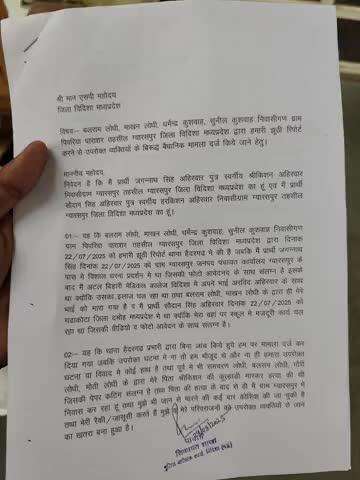 श्री मान एसपी महोदय
जिला विदिशा मध्यप्रदेश
विषय:- बलराम लोधी, माखन लोधी, धर्मेन्द्र कुशवाह, सुनील कुशवाह निवासीगण ग्राम
पिपरिया पाराशर तहसील ग्यारसपुर जिला विदिशा मध्यप्रदेश द्वारा हमारी झूठी रिपोर्ट
करने से उपरोक्त व्यक्तियों के बिरूद्ध बैधानिक मामला दर्ज किये जाने हेतु।
माननीय महोदय
निवेदन है कि मैं प्रार्थी जगन्नाथ सिंह अहिरवार पुत्र स्वर्गीय श्रीकिशन अहिरवार
निवासीग्राम तहसील ग्यारसपुर जिला विदिशा मध्यप्रदेश का हूं एवं मैं प्रार्थी
सौदान सिंह अहिरवार पुत्र स्वर्गीय हरकिशन अहिरवार निवासीग्राम ग्यारसपुर तहसील
ग्यारसपुर जिला विदिशा मध्यप्रदेश का हूं।
01:- यह कि बलराम लोधी, माखन लोधी, धर्मेन्द्र कुशवाह, सुनील कुशवाह निवासीगण
ग्राम पिपरिया पाराशर तहसील ग्यारसपुर जिला विदिशा मध्यप्रदेश द्वारा दिनांक
22/07/2025 को हमारी झूठी रिपोर्ट थाना हैदरगढ मे की है जबकि मैं प्रार्थी जगन्नाथ
सिंह दिनांक 22/07/2025 को ग्राम ग्यारसपुर जनपद पंचायत कार्यालय ग्यारसपुर के
पास मे विशाल धरना प्रदर्शन मे था जिसकी फोटो आवेदनपत्र के साथ संलग्न है इसके
बाद मैं अटल बिहारी मेडिकल कालेज विदिशा मे अपने भाई अरविंद अहिरवार के साथ
था क्योंकि उसका इलाज चल रहा था तथा बलराम लोधी, माखन लोधी के द्वारा ही मेरे
भाई को मारा गया है व मैं प्रार्थी सौदान सिंह अहिरवार दिनांक 22/07/2025 को
गढाकोटा जिला दमोह मध्यप्रदेश मे था क्योंकि मेरा वहां पर स्कूल मे मजदूरी कार्य चल
रहा था जिसकी वीडियो व फोटो आवेदन के साथ संलग्न है।
02:- यह कि थाना हैदरगढ प्रभारी द्वारा बिना जांच किये हुये हम पर मामला दर्ज कर
दिया गया जबकि उपरोक्त घटना मे ना तो हम मोजूद थे और ना ही हमारा उपरोक्त
घटना या विवाद मे कोई हाथ है तथा पूर्व मे भी बलराम लोधी, गोटी
लोधी, मोती लोधी के द्वारा मेरे पिता श्रीकिशन की कुल्हाडी मारकर हत्या की थी
जिसकी पेपर कटिंग संलग्न है तथा पिता की हत्या के बाद से ही मैं ग्राम ग्यारसपुर मे
निवास कर रहा हूं तथा मुझे भी जान से मारने की कई बार कोशिस की जा चुकी है
तथा मेरी रैकी/जासूसी करते है मुझे व मेरे परिवारजनों को उपरोक्त व्यक्तियों से जान
का खतरा बना हुआ है।
शिकायत शाखा